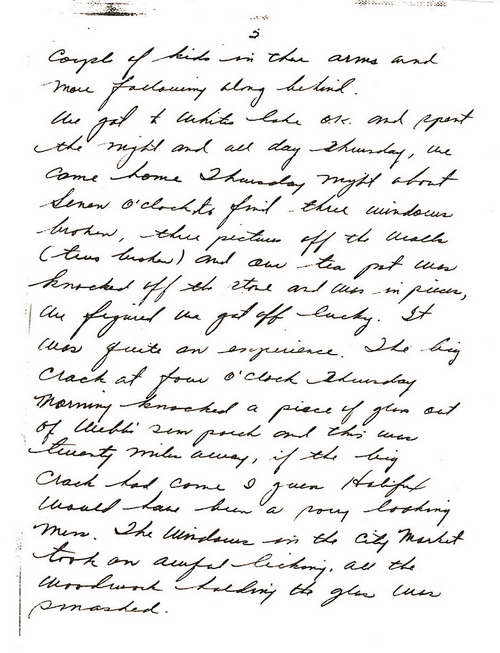 5
couple of kids in thee arms and
more following along behind.
We got to White's Lake O.K. and spent
the night and all day Thursday, we
came home Thursday night about
Seven O'clock, to find three windows
broken, three pictures off the walls
(two broken) and our tea pot was
knocked off the stove and was in pieces,
we figured we got off lucky. It
was quite an experience. The big
crack at four O'clock Thursday
Morning knocked a piece of glass out
of Webb's sun porch and this was
twenty miles away, if the big
crack had come I guess Halifax
would have been a sorry looking
mess. The Windows in the City Market
took an awful licking, all the
woodwork holding the glass was
smashed.